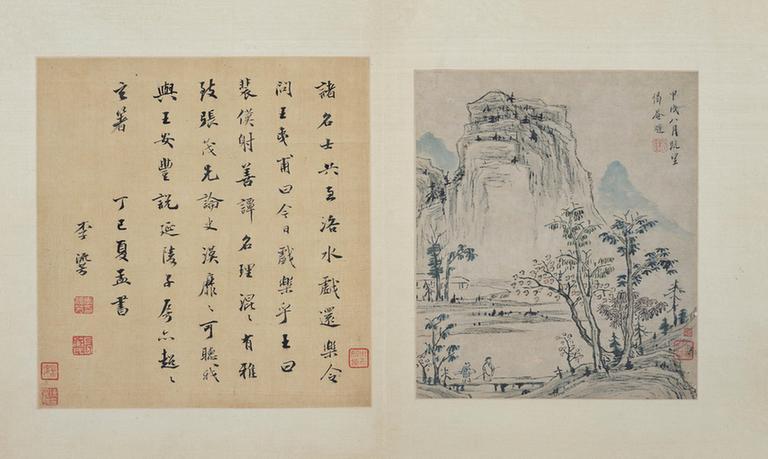 諸名士共至洛水戲還樂令
問王夷甫曰今日戲樂乎王曰
裴僕射善譚名理混〻有雅
致張茂先論史漢靡〻可聽我
與王安豐說延陵子房亦超〻
玄著　丁巳夏孟書
李
甲戌八月既望